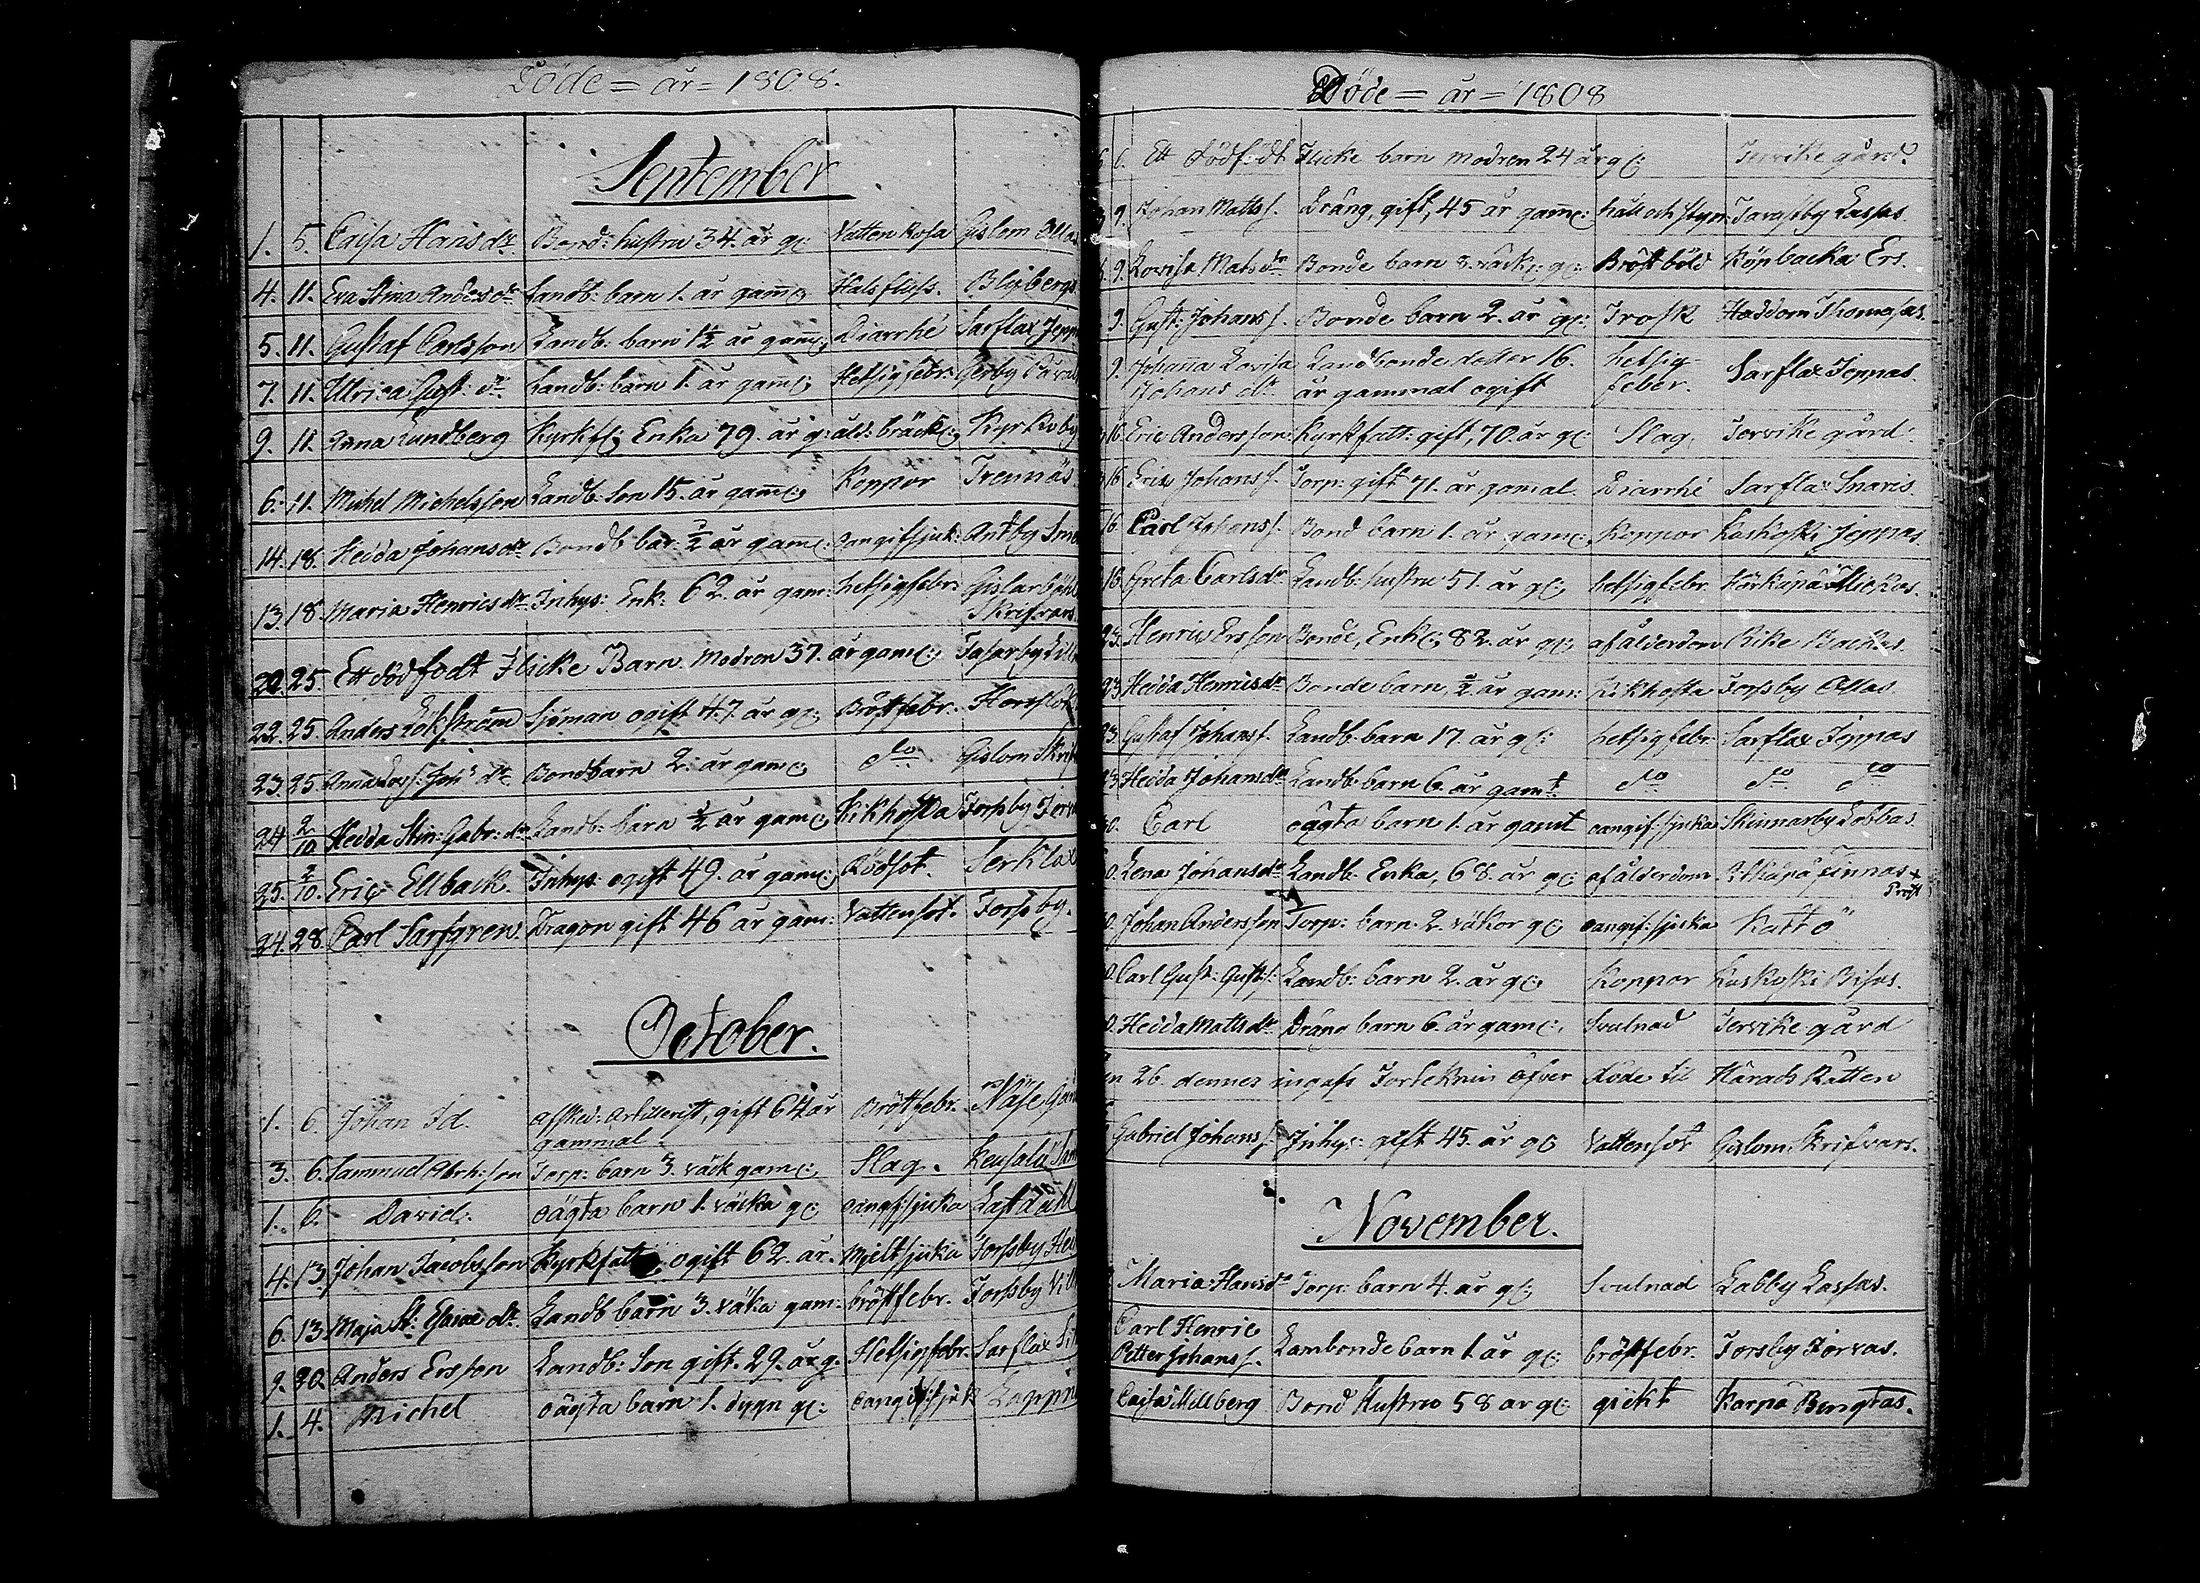 Döde = år = 1808.
September
1. 5. Cajsa Hansdr Bond: hustru 34. år g: Vatten Rosa Gislom Olla
4. 11. Eva Stina Andersdr Landb: barn 1. år gam: Halsfluss. Blybergs
5. 11. Gustaf Carlsson Landb: barn 1½ år gam: Diarrhé Sarflax Jepp
7. 11. Ulrica Gust: dr Landb: barn 1. år gam: Hetsigfebr: Gesby
9. 11. Anna Lundberg Kyrkf: Enka 79. år g: åld: bräck: Kyrkoby
6. 11. Michel Michelsson Landb: Son 15. år gam: Koppor Tremnäs
14. 18. Hedda Johansdr Bondb: bar: ½ år gam: Oangifsjuk: Antby Sm
13. 18. Maria Henricsdr Inhys: Enk: 62. år gam: hetsigfebr: Gislarböhle
Skrifvars
22. 25. Ett dödfödt Flicke Barn. Modren 37. år gam: Tasarby Lill
22. 25. Anders Lökström Sjöman ogift 47. år g: Bröstfebr. Horslök
23. 25. Anna Lovs: Joh: dr Bondbarn 2. år gam: do Gislom Skrif
24 2/10 Hedda Stin: Gabr: dr Landb: barn ½ år gam: Kikhosta Forsby Forv
25. 2/10. Eric Ellback. Inhys ogift 49. år gam: Rödsot. Serklax
24. 28. Carl Sarfgren. Dragon gift 46 år gam: Vattensot. Forsby.
October.
1. 6. Johan Id. afsked: artillerist, gift 64 år Bröstfebr. Näse Går
gammal.
3. 6. Sammuel Abrh:son Torp: barn 3. väck gam: Slag. Keusala
1. 6. David. oägta barn 1. väcka g: oangifsjuka
4. 13. Johan Jacobsson Kyrkfatt: ogift 62. år. Mjeltsjuka Forsby He
6. 13. Maja St: dr Landb barn 3. väka gam: bröstfebr. Forsby Vill
9. 30. Anders Ersson Landb: Son gift. 29. år g. Hetsigfebr. Sarflax
1. 4. Michel oägta barn 1. dygn g: oangifsjuk Lappnä
Döde = år = 1808
6. Ett dödfödt Flicke barn modren 24 år g: Tervike gård.
9. Johan Matts s. Dräng, gift, 45 år gam: håll och styn Tavastby Lassas.
9. Lovisa Matsdr Bonde barn 3. väck: g: Bröstböld Köpbacka Ers.
9. Gust: Johans s. Bonde barn 2. år g: Trosk Haddom Thomasas.
9. Johanna Lovisa Landbonde dotter 16. hetsig- Sarflax Jeppas.
Johans dr år gammal ogift feber.
16. Eric Andersson Kyrkfatt: gift, 70. år g: Slag Tervike gård.
16. Eric Johans s. Torp: gift 71. år gamal. Diarrhé Sarflax Snaris.
16. Carl Johans s. Bond barn 1. år gam: Koppor Kaskoski Jeppas.
16. Greta Carlsdr Landb: hustru 51. år g: hetsigfebr. Hörkäpä Mickas.
23. Henric Ersson Bonde, Enk: 82. år g: af ålderdom Rike Backas.
23 Hedda Henricsdr Bonde barn, ½ år gam: Kikhosta Forsby Ollas
23. Gustaf Johans s. Landb. barn 17. år g: hetsigfebr. Sarflax Jeppas
23. Hedda Johansdr Landb: barn 6. år gamt do do do
30. Carl oägta barn 1. år gamt oangif: sjuka Skinnarby Lobbas.
30. Lena Johansdr Landb. Enka, 68. år g: af ålderdom Ilkäpä Finnas
Prost
30. Johan Andersson Torp: barn. 2. väkor g: oangif: sjuka Kattö
30. Carl Gust: Gusts s. Landb: barn 2. år g: Koppor Kaskoski Bisas.
30. Hedda Mattsdr Dräng barn 6. år gam: Svulnad Tervike gård
26. dennes ingafs Förteknin öfver Döde til Härads Rätten
Gabriel Johans s. Inhys: gift 45. år g: Vattensot Gislom Skrifvars.
November.
Maria Hansdr Torp: barn 4. år g: Svulnad Labby Lassas.
Carl Henric
Petter Johans s. Lambonde barn 1. år g: bröstfebr. Forsby Forvas.
Cajsa Millberg Bond Hustru 58 år g: gickt Karpä Bengtas.